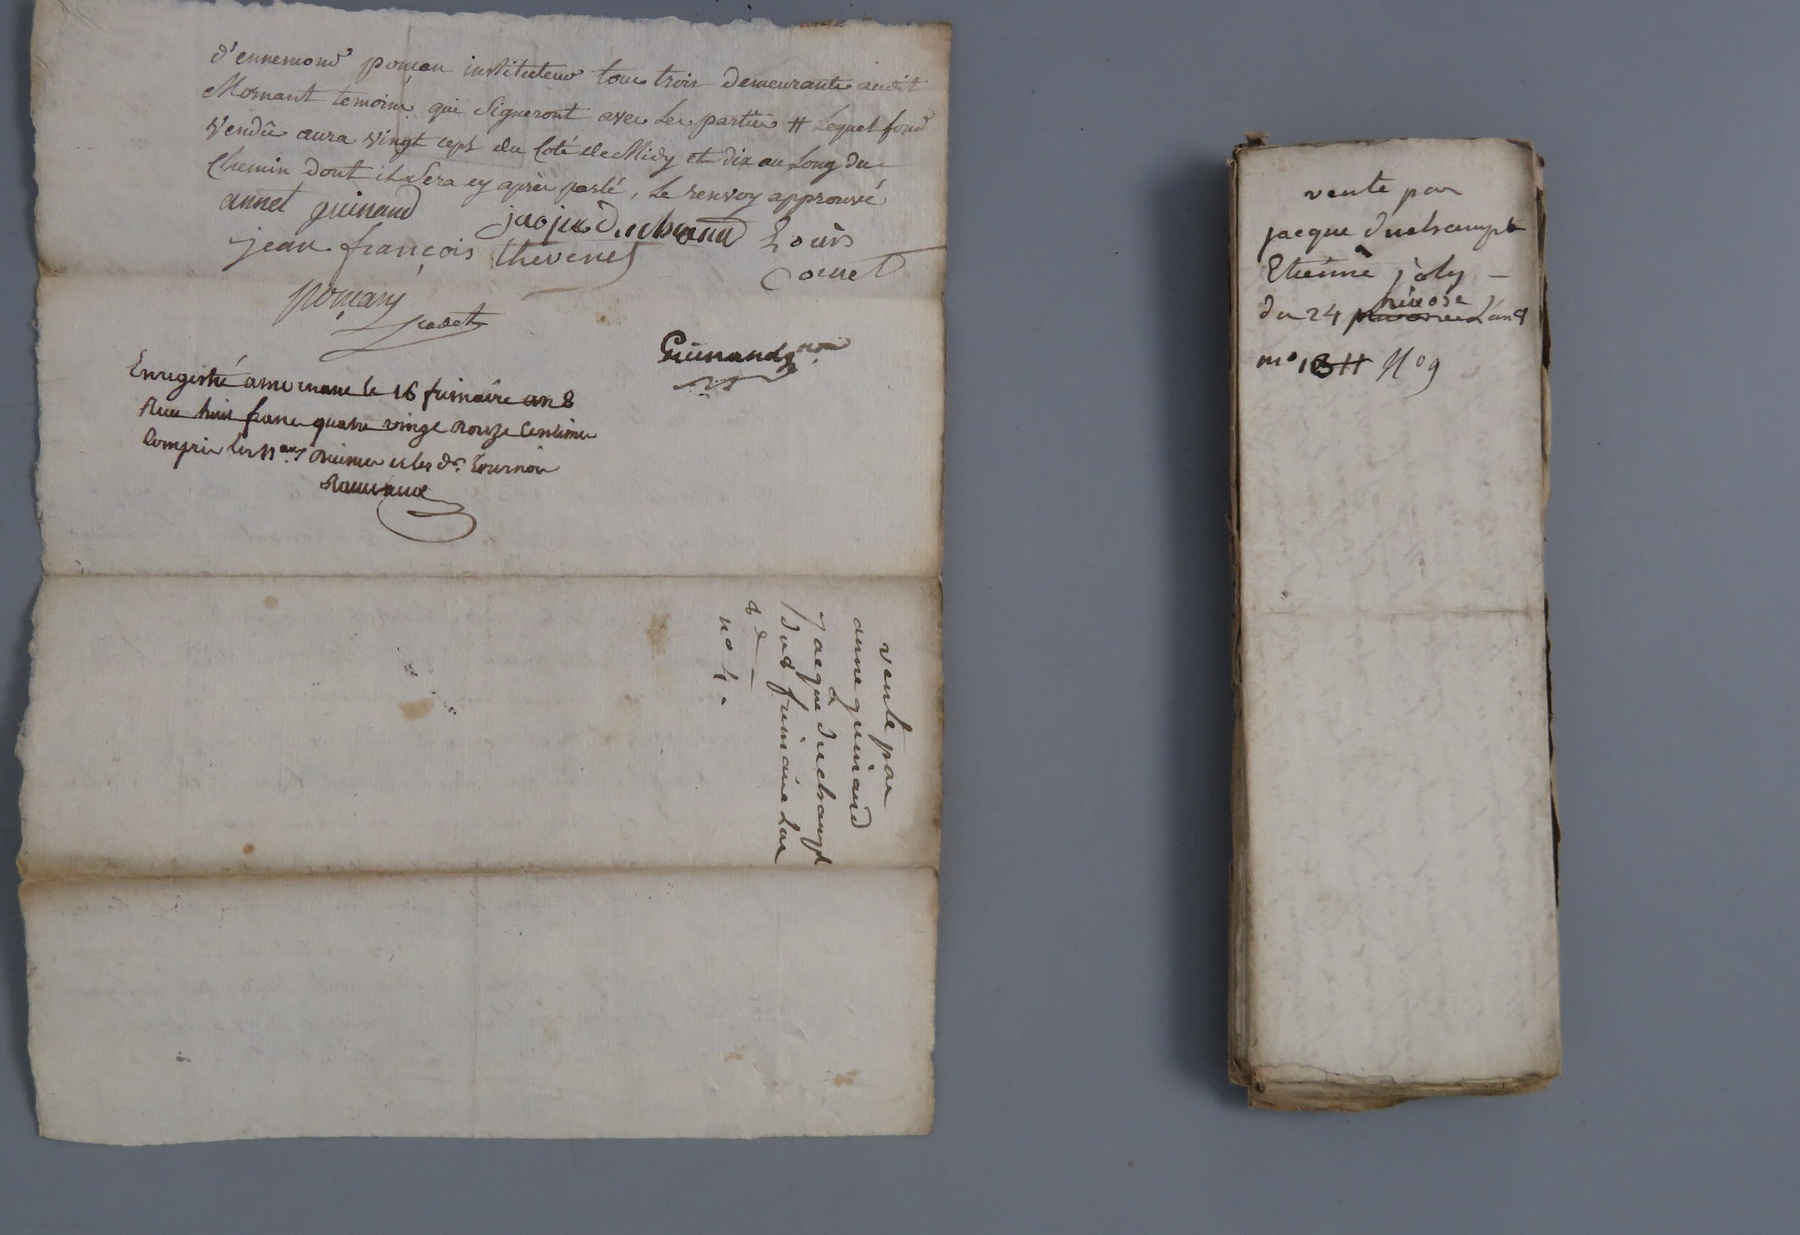 d'ennemond poncon instituteur tous trois demeurants audit
Mornant temoins qui Signeront avec les parties # Lequel fond
Vendû aura vingt ceps du Coté de Midy et dix au Long du
Chemin dont il Sera cy aprés parlé, Le renvoy approuvé
annet guinand jacque Duchamp Louis
jean françois thevenet Cornet
poncon
cadet
Guinand
Enregistré a mornant le 16 frimaire an 8
Recu huit franc quatre vingt douze Centimes
Compris les
vente par
anne guinand
a
Jacque duchampt
du 8 frimaire Lan
8e
no 4.
vente par
jacque duchampt
Etienne joly —
du 24 nivose L'an 8
no 1311 No 9